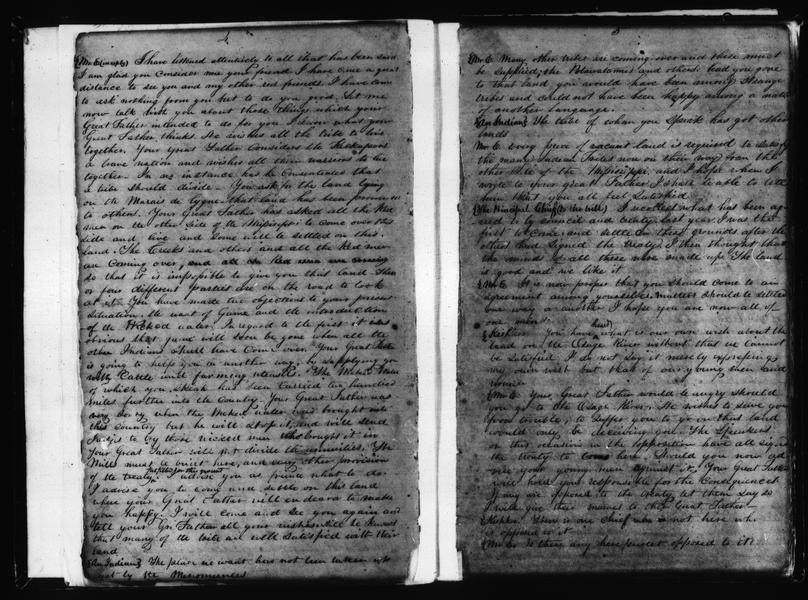 4
I have listened attentively to all that has been said
I am glad you consider me your friend I have come a great
distance to see you and my other red friends I have come
to ask nothing from you but to do you good. Let me
now talk with you about those things which your
Great Father intended to do for you I know what your
Great Father thinks. He wishes all the tribe to live
together. Your Great Father considers the Kickapoos
a brave nation and wishes all their warriors to live
together. In no instance has he consented that
a tribe should divide - You ask for the land lying
on the Marais de Cygne that land has been promised
to others. Your Great Father has asked all the Red
men on the other side of the Mississippi to come over this
side and live and some will be settled on this
land. The Creeks and others and all the Red men
are coming over, and all the Red men are coming
so that it is impossible to give you this land. Three
or four different parties are on the road to look
at it. You have made two objections to your present
situation, the want of Game and the introduction
of the Wicked water. In regard to the first it is
obvious that game will soon be gone when all the
other Indians shall have come over. Your Great Father
is going to help you in another way, by supplying you
with Cattle and farming utensils. The Wicked Water
of which you speak has been carried two hundred
miles further into the Country. Your Great Father was
very sorry when the Wicked water was brought into
this country but he will stop it, and will send
by these wicked men who bought it in
Your Great Father will not divide the annuities. The
Mills must be built here, and every other provision
of the treaty. I advise you as friends what to do
I advise you to come and settle on this land
where your Great Father will endeavor to make
you happy. I will come and see you again and
tell your Gr Father all your wishes
that many of the tribe are well satisfied with their
land
(An Indian) The place we want has not been taken up
yet by the Menomenees
5
Mr E Many other tribes are coming over and these must
be supplied, the Potawatamies and others. Had you gone
to that land you would have been among strange
tribes and could not have been happy among a nation
of another language.
(An Indian) The tribe of whom you speak has got other
lands
Mr E Every piece of vacant land is required to satisfy
the many Indian tribes now on their way from the
other side of the Mississippi and I hope when I
write to your great Father I shall be able to tell
him that you all feel satisfied
(The Principal Chief of the tribe) I second what has been
by council and treaty last year I was the
first to come and settle on these grounds after the
others had signed the treaty. I then thought that
the minds of all these were made up. The land
is good and we like it
Mr E It is now proper that you should come to an
agreement among yourselves. Matters should be settled
one way or another I hope you are now all of
one mind.
You have heard what is our own wish about the
land on the Osage River without that we cannot
be satisfied I do not say it merely expressing
my own wish but that of our young men and
women
Mr E Your Great Father would be angry should
you go to the Osage River, He wishes to save you
from trouble, to suffer you to go on that land
would only be deceiving you. The Speakers
on this occasion in the opposition have all signed
the treaty to come here. Should you now
your young men against it, Your Great Father
will hold you responsible for the Consequences
If any are opposed to the treaty let them say so
I will give their names to the Great Father
There is one Chief who is not here who
is opposed to it
Mr E Is there any here present opposed to it?